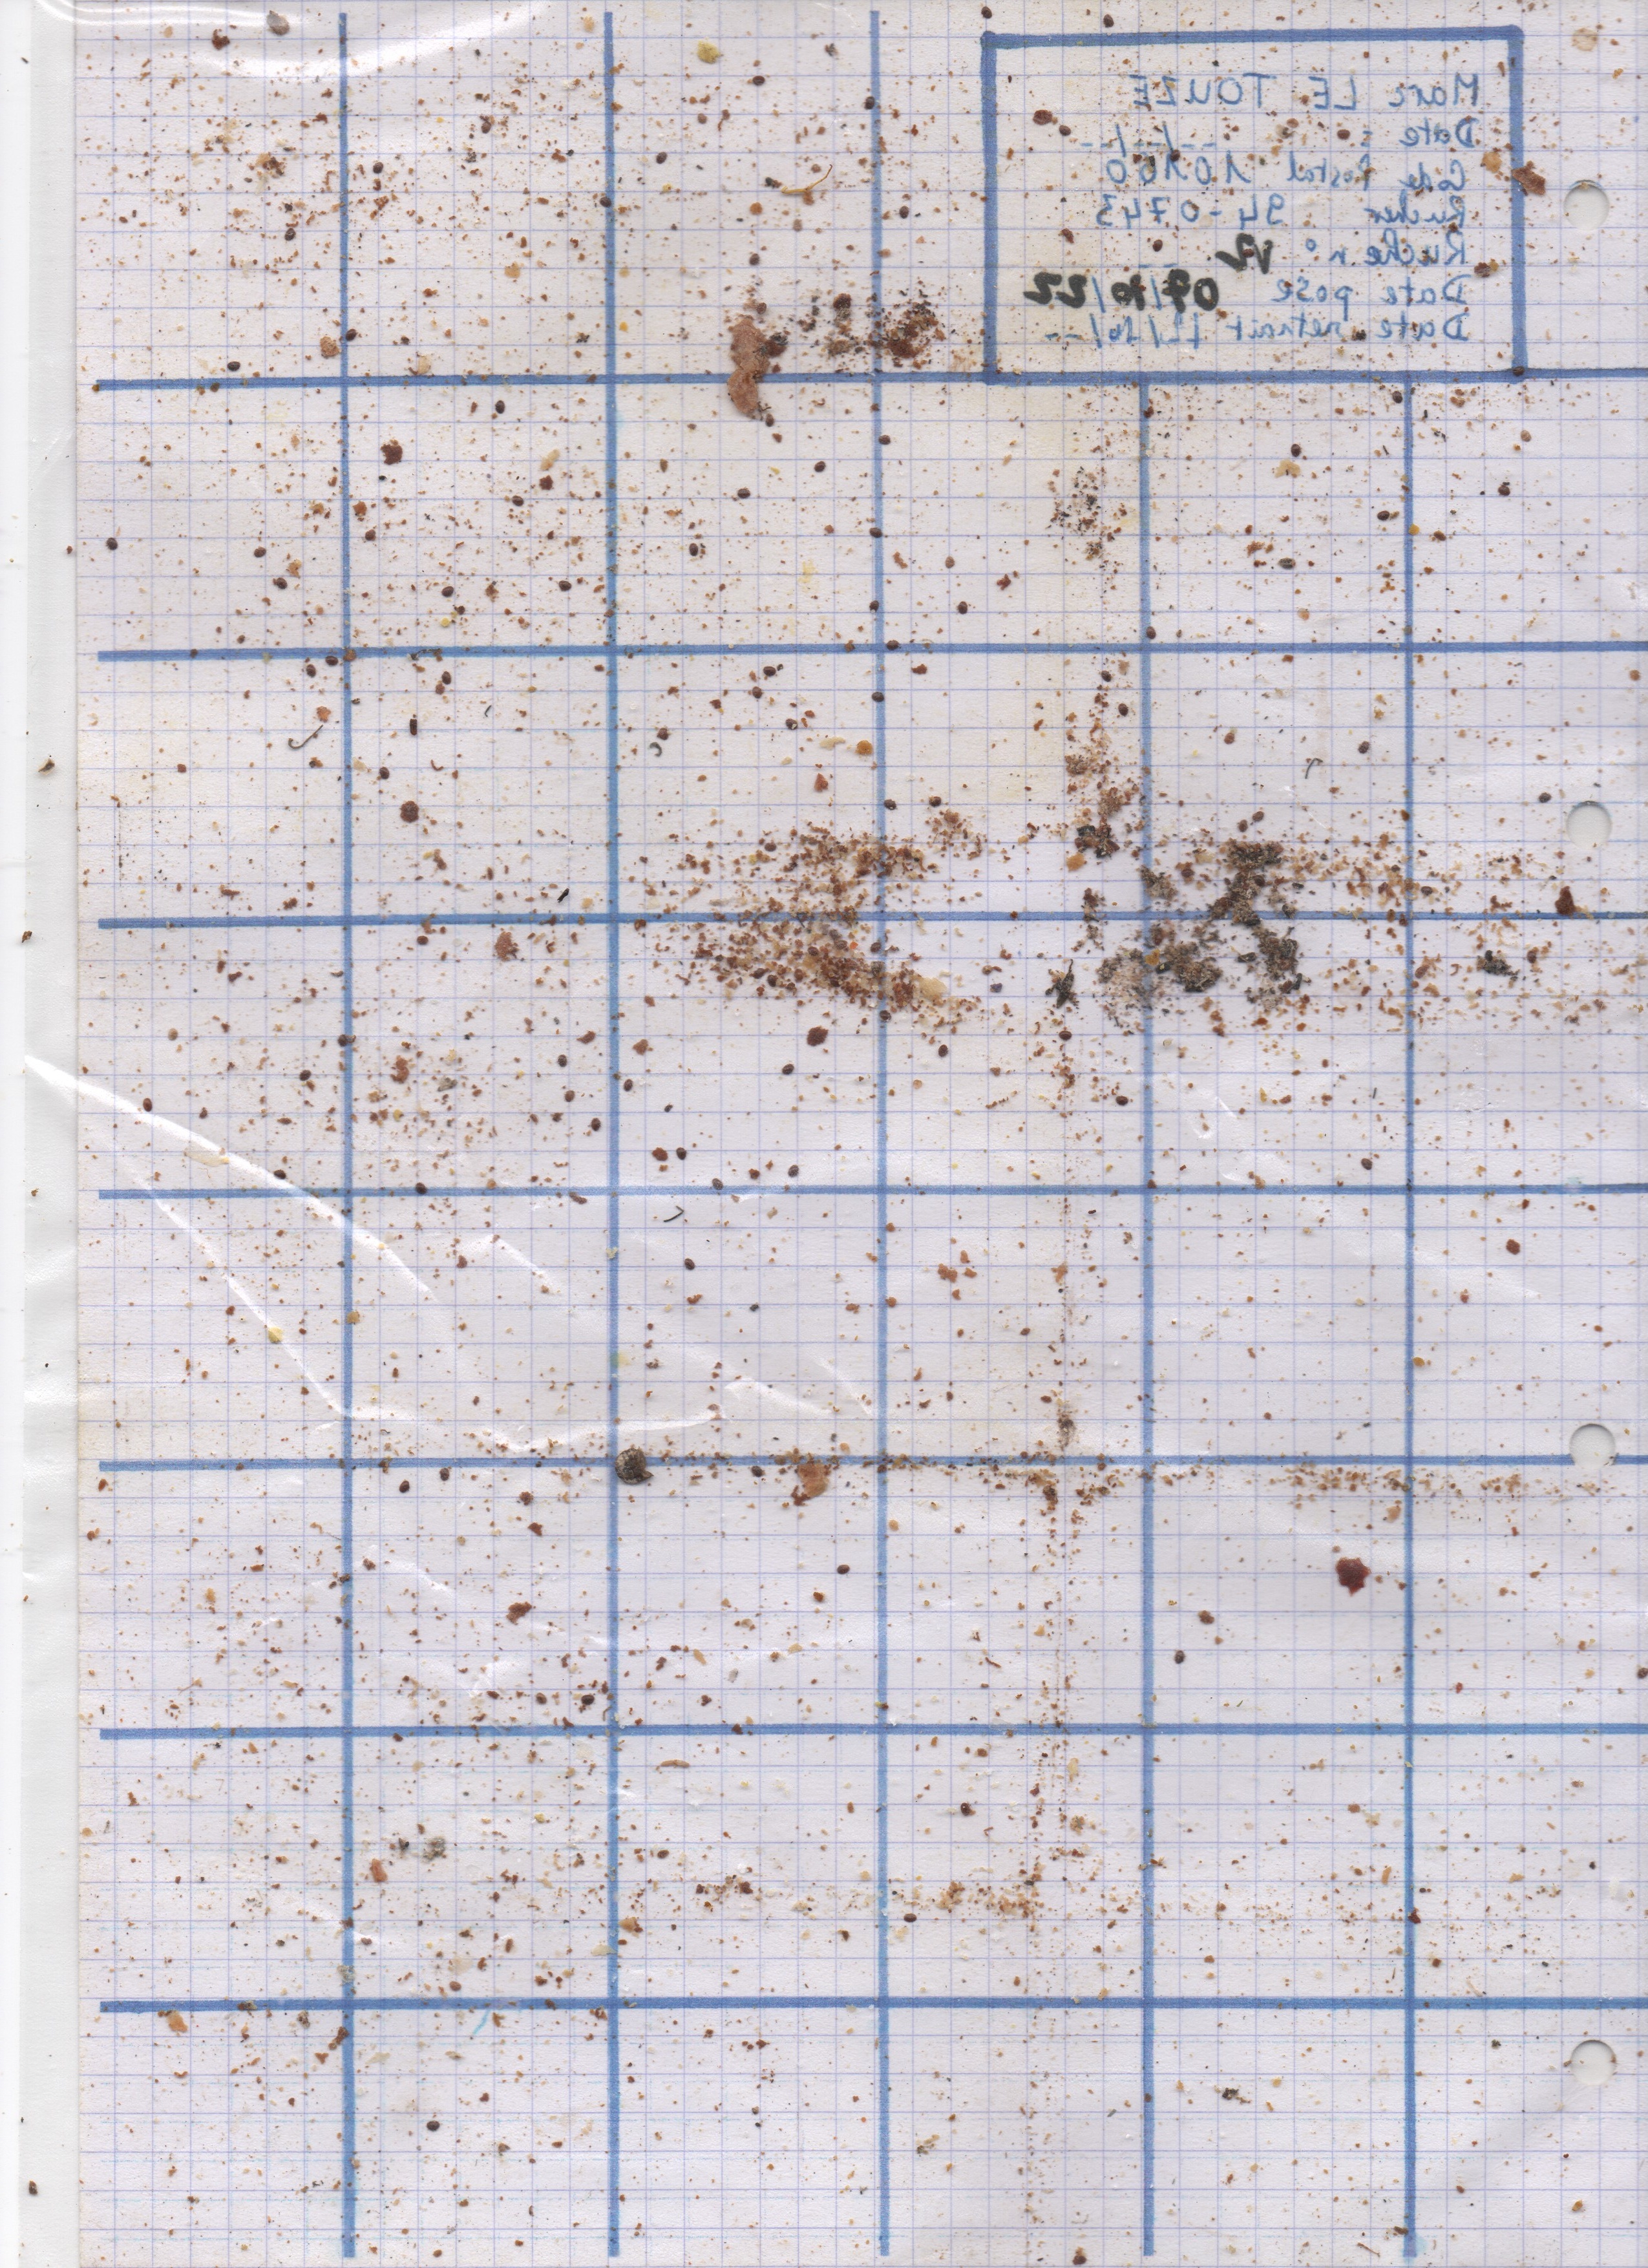 Marc LE TOUZE
Date : __/__/__
Code Postal 10160
Rucher 94-0743
Ruche n° V2
Date pose 09/10/22
Date retrait 12/10/--